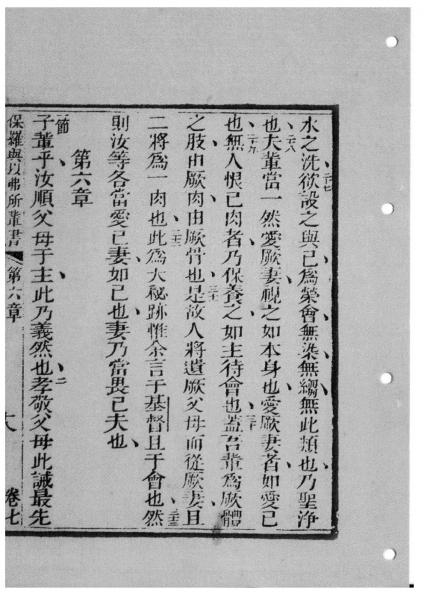 水之洗欲設之與己為榮會無染無縐無此類也乃聖净
也夫輩當一然愛厥妻視之如本身也愛厥妻者如愛已
也無人恨已肉者乃保養之如主待會也蓋吾輩為厥體
之肢由厥肉由厥骨也是故人將遺厥父母而從厥妻且
二將為一肉也此為大秘跡惟余言于基督且于會也然
則汝等各當愛已妻如已也妻乃當畏已夫也
第六章
一節子輩乎汝順父母于主此乃義然也二孝敬父母此誡最先
保羅與以弗所輩書 第六章 卷七